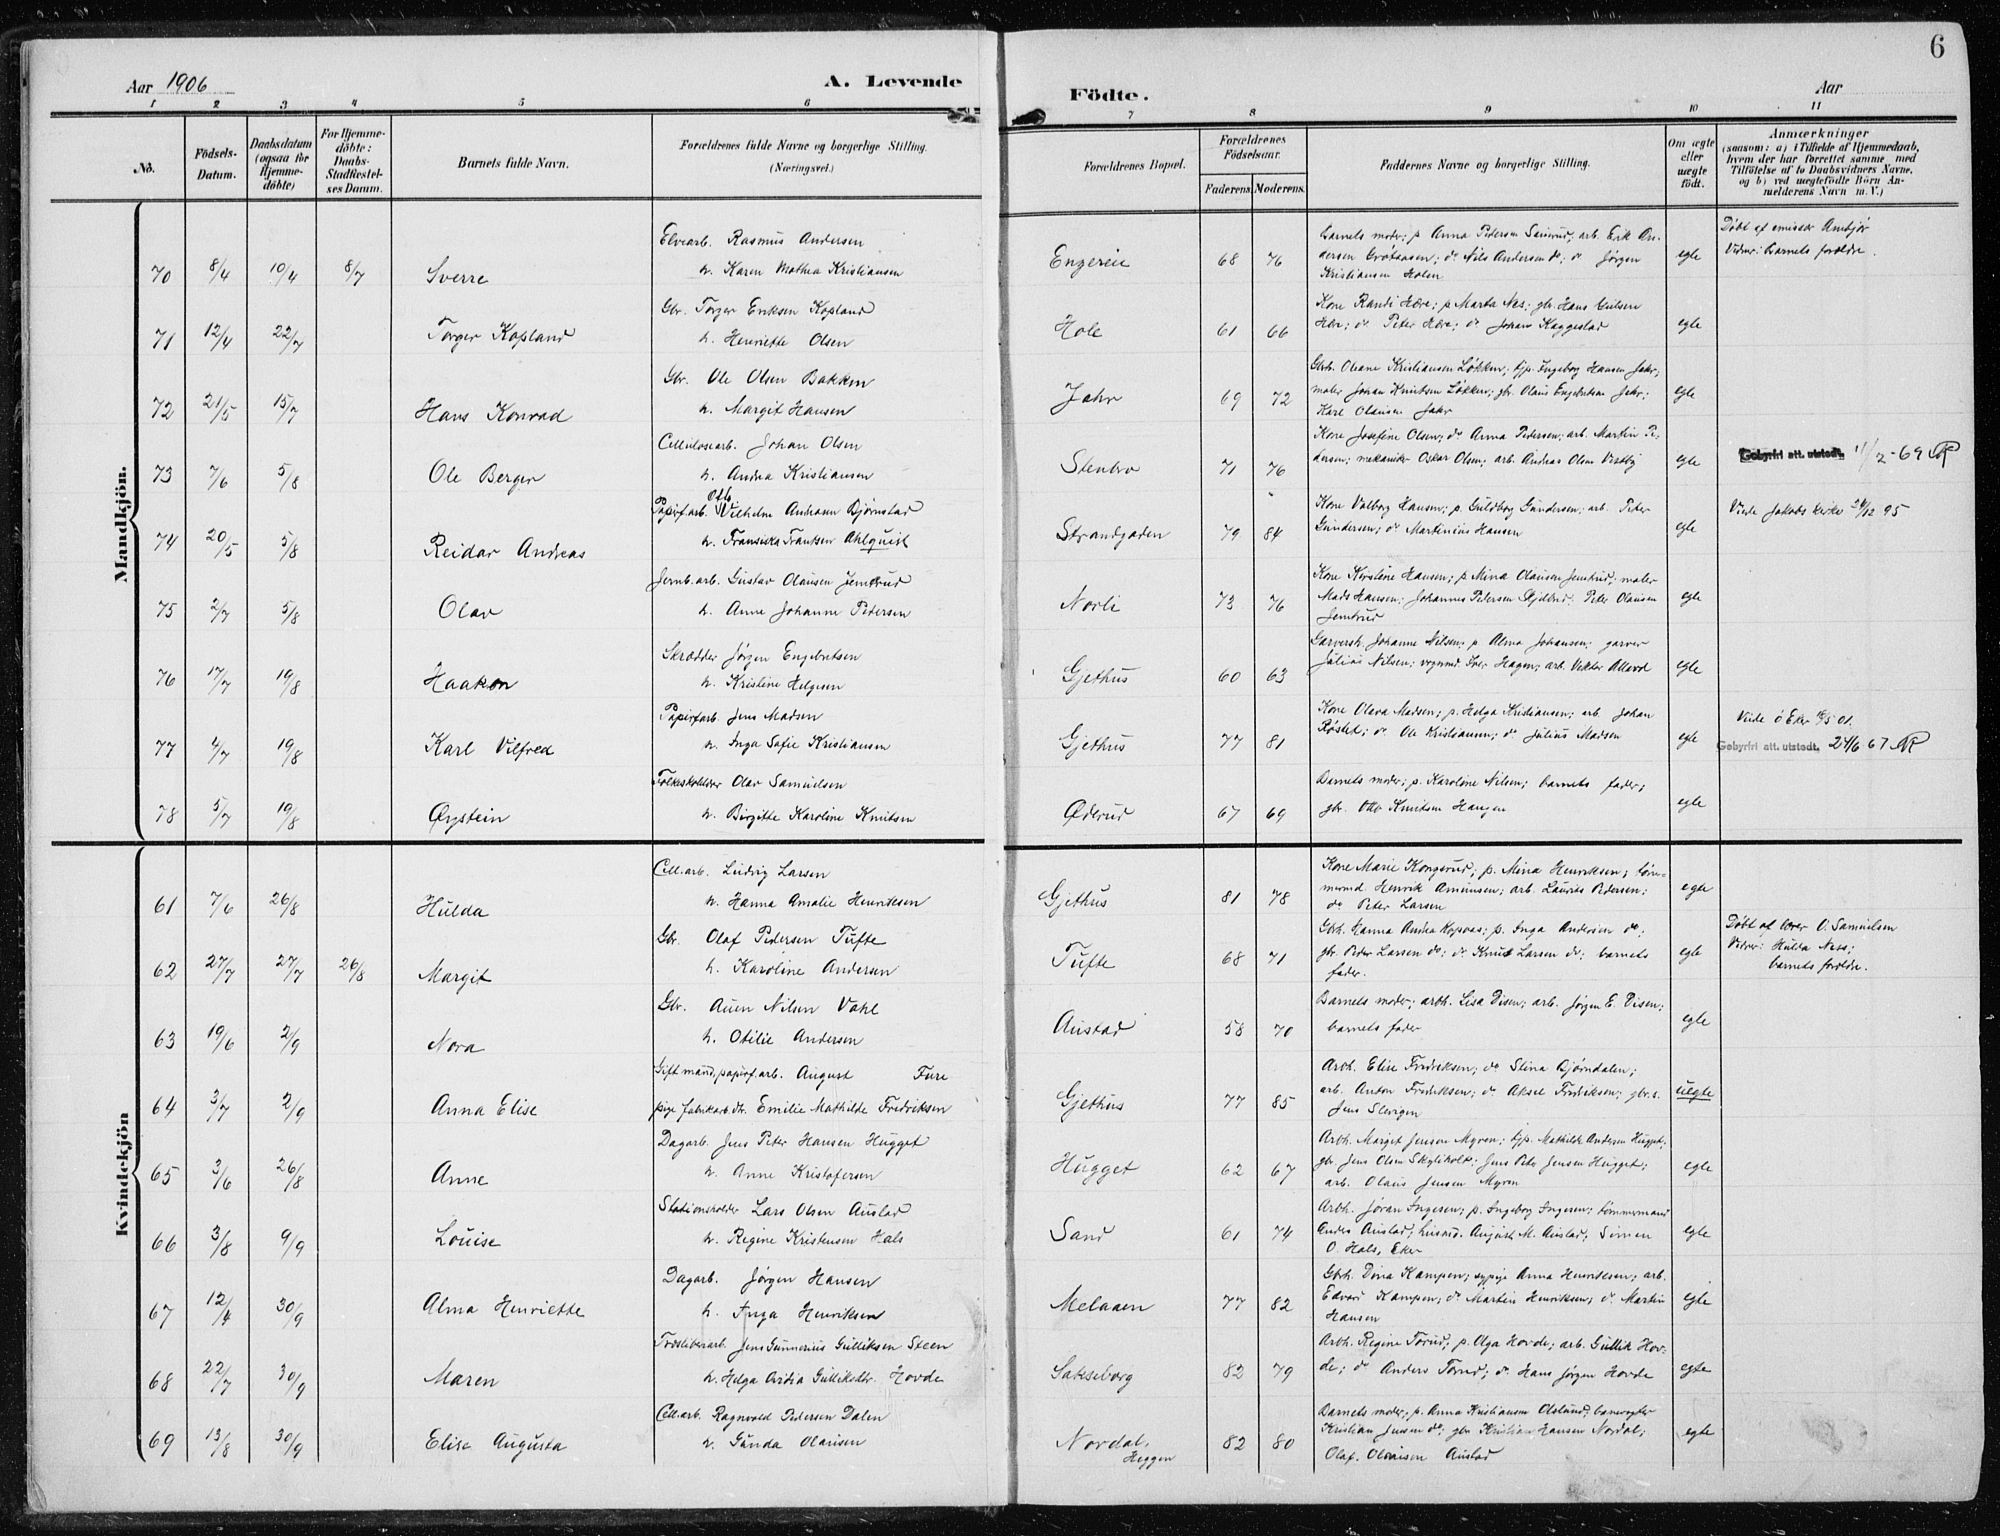 6
Aar 1906
A. Levende
Födte.
Aar
1 2 3 4 5 6 7 8 9 10 11
No.
Födsels-
Datum.
Daabsdatum
(ogsaa for
Hjemme-
döbte)
For Hjemme-
döbte:
Daabs-
Stadfæstel-
ses Datum.
Barnets fulde Navn.
Forældrenes fulde Navne og borgerlige Stilling.
(Næringsvei.)
Forældrenes Bopæl.
Forældrenes
Födselsaar.
Faderens. Moderens.
Faddernes Navne og borgerlige Stilling.
Om ægte
eller
uægte
födt.
Anmærkninger
(saasom: a) i Tilfælde af Hjemmedaab,
hvem der har forrettet samme, med
Tilföielse af to Daabsvidners Navne,
og b) ved uægtefödte Börn An-
melderens Navn m. V.)
Mandkjön.
70 8/4 10/4 8/7 Sverre
Elvearb. Rasmus Andersen
h. Karen Mathea Kristiansen
Engereie 68 76
Barnets moder; p. Anna Pedersen; arb. Erik An-
dersen Grötaasen; do Nils Andersen do; do Jörgen
Kristiansen Holen
egte
Döbt af emissær
Vidner: Barnets forældre.
71 12/4 22/7 Torger Kopland
Gbr. Torger Eriksen Kopland
h. Henriette Olsen
Hole 61 66
Kone Randi Hære; p. Marta Næs; gbr. Hans
Hære; do Peter Hære; do Johan Kaggestad
egte
72 21/5 15/7 Hans Konrad
Gbr. Ole Olsen Bakken
h. Margit Hansen
Jahr 69 72
Gbrh. Oleane Kristiansen Løkken; tjp. Ingeborg Hansen Jahr;
maler Johan Knutsen Løkken; gbr. Olaus Engebretsen Jahr;
Karl Olausen Jahr
egte
73 7/6 5/8 Ole Berger
Cellulosearb. Johan Olsen
h. Andrea Kristiansen
Stenbro 71 76
Kone Josefine Olsen; do Anna Pedersen; arb. Martin Pe-
dersen; mekaniker Oskar Olsen; arb. Andreas Olsen
egte
Gebyrfri att. utstedt. 11/2-69
74 20/5 5/8 Reidar Andreas
Papirf.arb. Otto Vilhelm Anthonn Bjørnstad
h. Fransiska Frantsen Ahlquist
Strandgaden 79 84
Kone Valborg Hansen; p. Guldborg Gundersen; arb. Peter
Gundersen; do Martinius Hansen
egte
Viede Jakobs kirke 26/12 95
75 2/7 5/8 Olav
Jernb.arb. Gustav Olausen Jemtrud
h. Anne Johanne Pedersen
Norli 73 76
Kone Kirstine Hansen; p. Mina Olausen Jemtrud; maler
Mads Hansen; Johannes Pedersen; Peter Olausen
Jemtrud
egte
76 17/7 19/8 Haakon
Skrædder Jørgen Engebretsen
h. Kristine Helgesen
Gjethus 60 63
Garversk. Johanne Nilsen; p. Alma Johansen; garver
Julius Nilsen; vognmd. Iver Hagen; arb. Viktor
egte
77 4/7 19/8 Karl Vilfred
Papirfarb. Jens Madsen
h. Inga Sofie Kristiansen
Gjethus 77 81
Kone Olava Madsen; p. Helga Kristiansen; arb. Johan
Røstet; do Ole Kristiansen; do Julius Madsen
egte
Viede ö Eker 01.
Gebyrfri att. utstedt. 24/6 67
78 5/7 19/8 Øystein
Folkeskolelærer Olav Samuelsen
h. Birgitte Karoline Knutsen
Øderud 67 69
Barnets moder; p. Karoline Nilsen; barnets fader;
gbr. Otto Knutsen Haugen
egte
Kvindekjön
61 7/6 26/8 Hulda
Cell.arb. Ludvig Larsen
h. Hanna Amalie Henriksen
Gjethus 81 78
Kone Marie Kongerud; p. Mina Henriksen; tøm-
mermd. Henrik Amundsen; arb. Laurits Pedersen;
do Peter Larsen
egte
62 27/7 27/7 26/8 Margit
Gbr. Olaf Pedersen Tufte
h. Karoline Andersen
Tufte 68 71
Gbrh. Hanna Andrea Kopsaas; p. Inga Andersen do;
gbr. Peder Larsen do; do Knut Larsen do; barnets
fader.
egte
Döbt af lærer O. Samuelsen
Vidner: Hulda Næss;
barnets forældre.
63 19/6 2/9 Nora
Gbr. Auen Nilsen Vahl
h. Otilie Andersen
Austad 58 70
Barnets moder; arbh. Lisa Disen; arb. Jørgen E. Disen;
barnets fader
egte
64 3/7 2/9 Anna Elise
Gift mand, papirf.arb. August Fure
pige fabrikarb.dr. Emilie Mathilde Fredriksen
Gjethus 77 85
Arbh. Elise Fredriksen; do Stina Bjørndalen;
arb. Anton Fredriksen; do Aksel Fredriksen; gbr.s.
Jens Slevigen
uegte
65 3/6 26/8 Anne
Dagarb. Jens Peter Hansen Hugget
h. Anne Kristofersen
Hugget 62 67
Arbh. Margit Jensen Myren; tjp. Mathilde Andersen Hugget;
gbr. Jens Olsen Skyliholt; Jens Peter Jensen Hugget;
arb. Olaus Jensen Myren
egte
66 3/8 9/9 Louise
Stationsholder Lars Olsen Austad
h. Regine Kristensen Hals
Sand 61 74
Arbh. Jøran Ingesen; p. Ingeborg Ingesen; tømmermand
Anders Austad; husmd. August M. Austad; Simen
O. Hals, Eker
egte
67 12/4 30/9 Alma Henriette
Dagarb. Jørgen Hansen
h. Inga Henriksen
Melaaen 77 82
Gbrh. Dina Kampen; sypige Anna Henriksen; arb.
Edvard Kampen; do Martin Henriksen; do Martin
Hansen
egte
68 22/7 30/9 Maren
Træsliberiarb. Jens Gunnerius Gulliksen Steen
h. Helga Ovidia Gulliksdtr. Hovde
Sakseborg 82 79
Arbh. Regine Torud; p. Olga Hovde; arb. Gullik Hov-
de; do Anders Torud; do Hans Jørgen Hovde
egte
69 13/8 30/9 Elise Augusta
Cell.arb. Ragnvald Pedersen Dalen
h. Gunda Olausen
Nordal, Heggen 82 80
Barnets moder; p. Anna Kristiansen Olslund; banevogter
Kristian Jensen do; gbr. Kristian Hansen Nordal;
Olaf Olausen Austad
egte